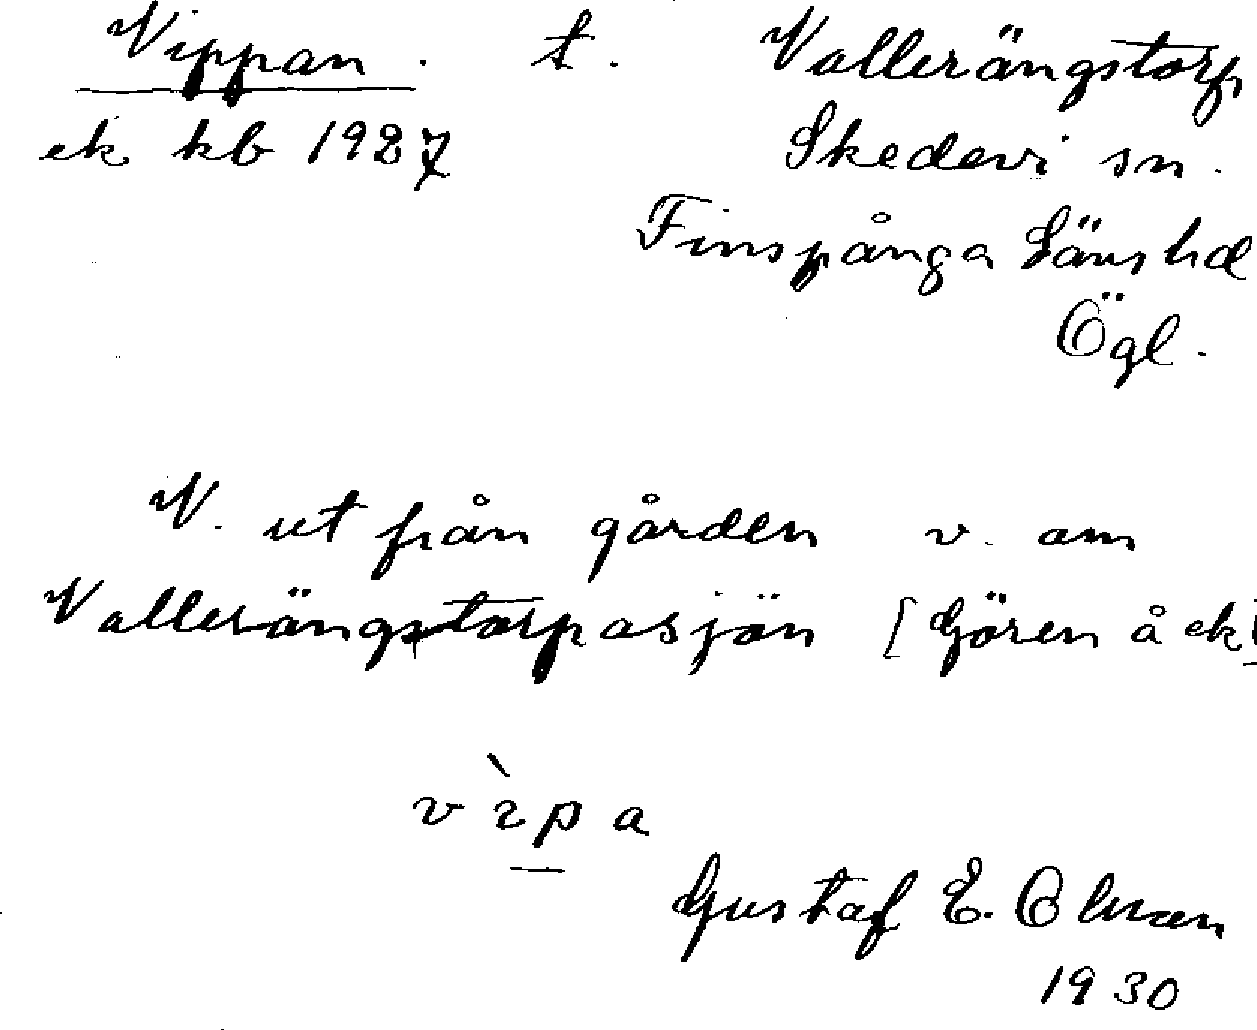 Vippan. t. Vallerängstorp
ek kb 1927 Skedevi sn.
Finspånga Länshd
Ögl.
V. ut från gården v. om
Vallerängstorpasjön [Gören å ek]
vìpa
Gustaf E. Olman
1930